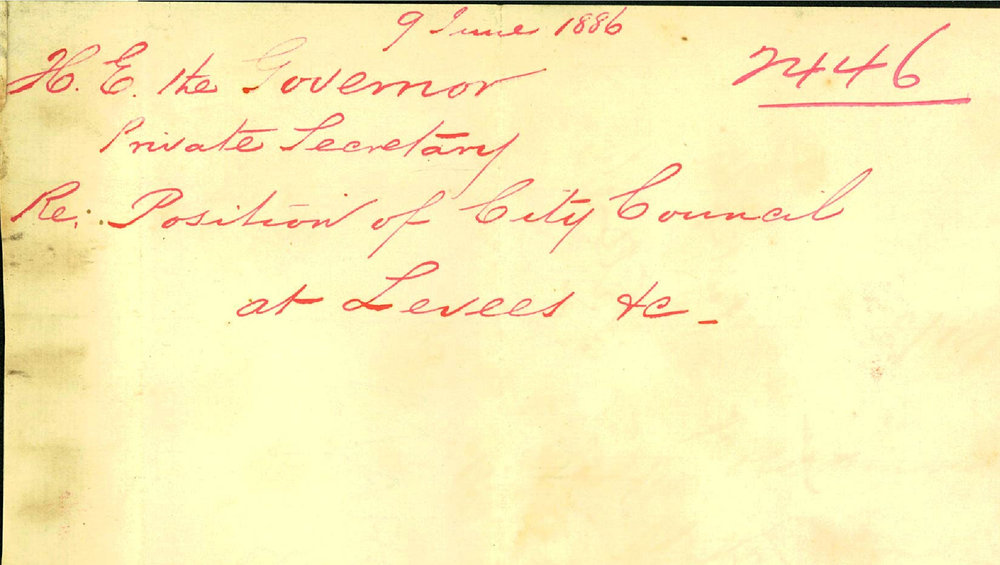 9 June 1886
2446
H. E. the Governor
Private Secretary
Re: Position of City Council
at Levees &c -